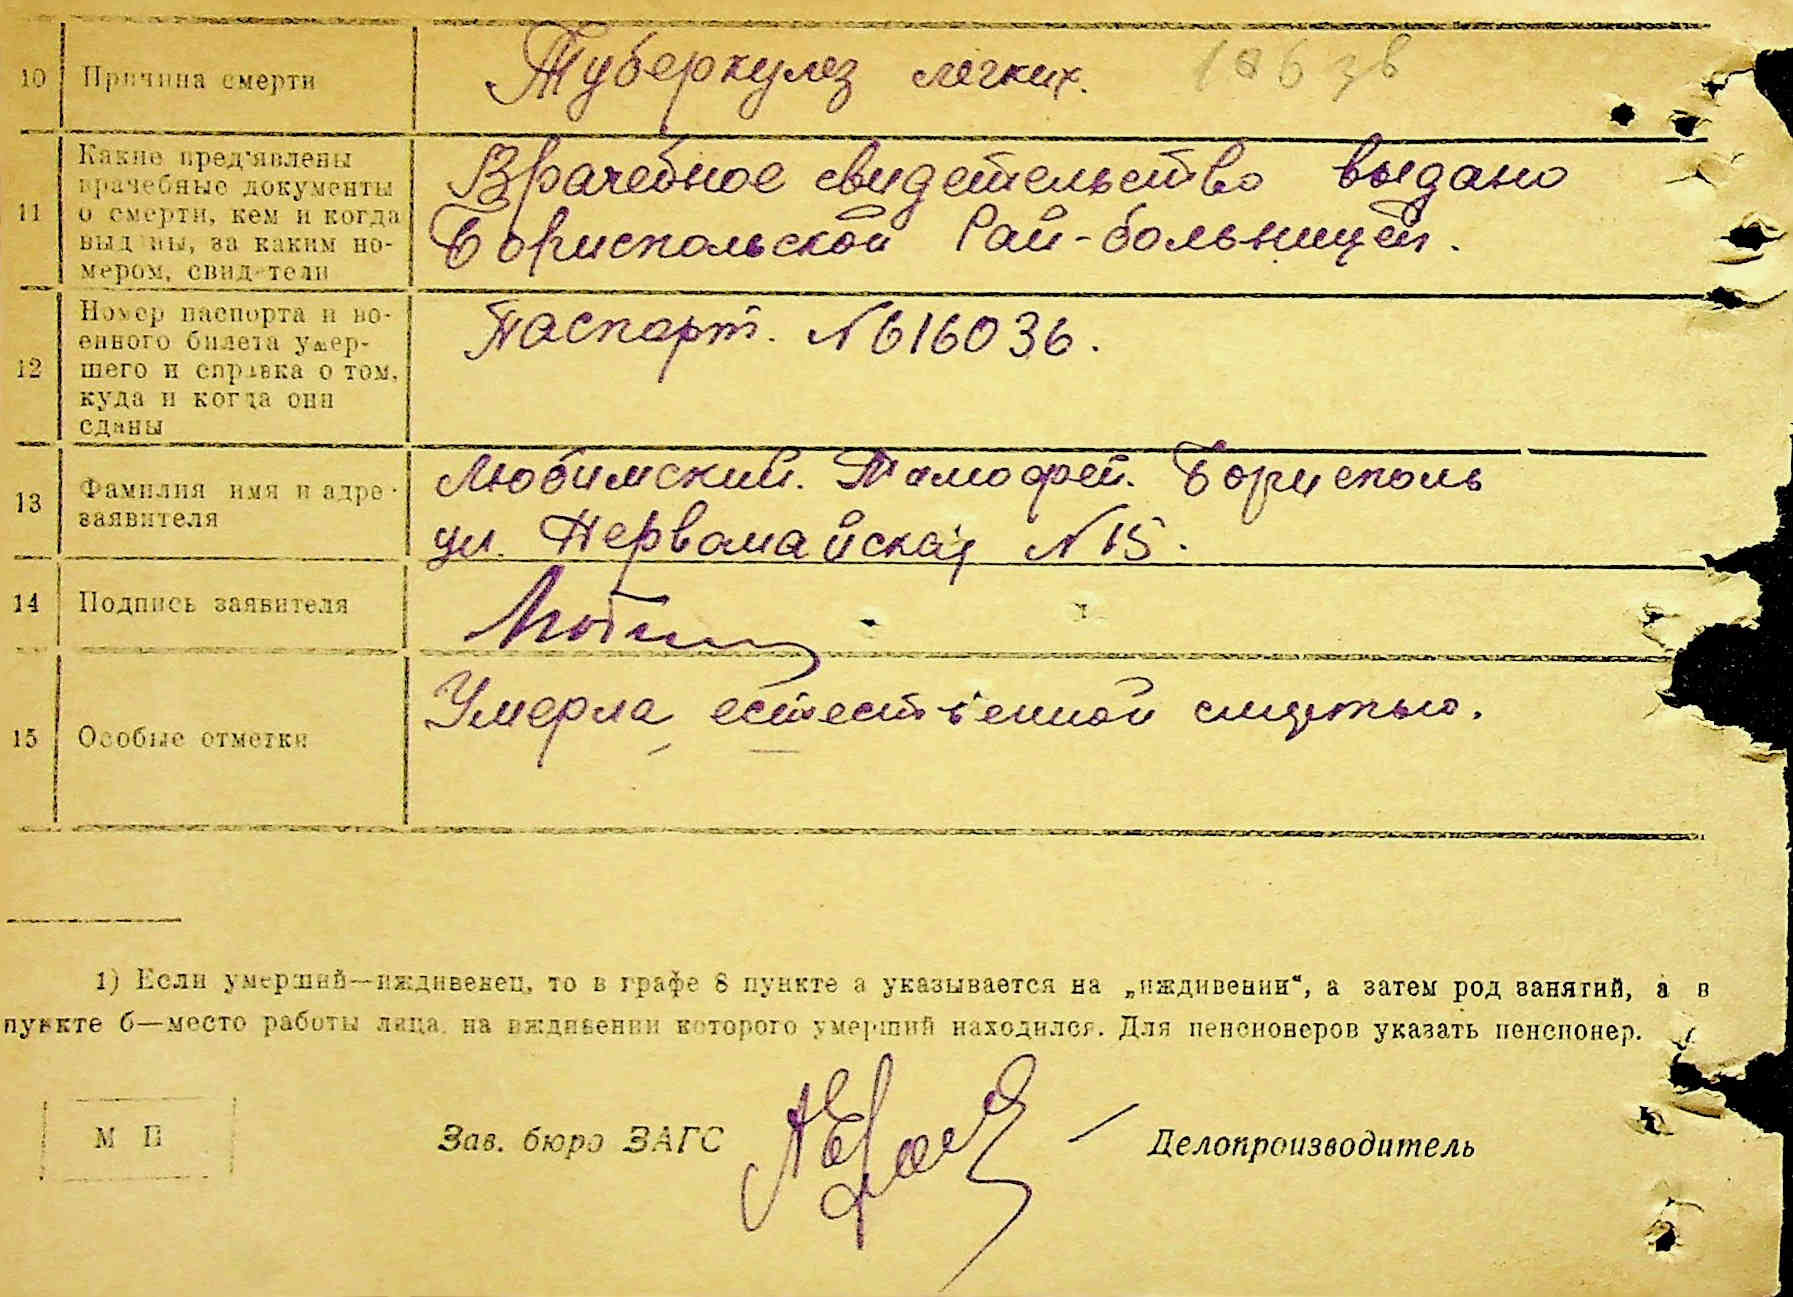 10 Причина смерти Туберкулез легких.
11 Какие пред'явлены врачебные документы о смерти, кем и когда выданы, за каким но-
мером, свидетели
Врачебное свидетельство выдано
Бориспольской Рай-больницей.
12 Номер паспорта и во-
енного билета умер-
шего и справка о том,
куда и когда они
сданы
Паспорт. №616036.
13 Фамилия имя и адре
заявителя
Любимский. Тамофей. Борисполь
ул. Первомайская №15.
14 Подпись заявителя
15 Особые отметки Умерла естественной смертью.
1) Если умерший—иждивенец, то в графе 8 пункте а указывается на „иждивении“, а затем род занятий, а в
пункте б—место работы лица, на иждивении которого умерший находился. Для пенсионеров указать пенсионер.
М П Зав. бюро ЗАГС Делопроизводитель